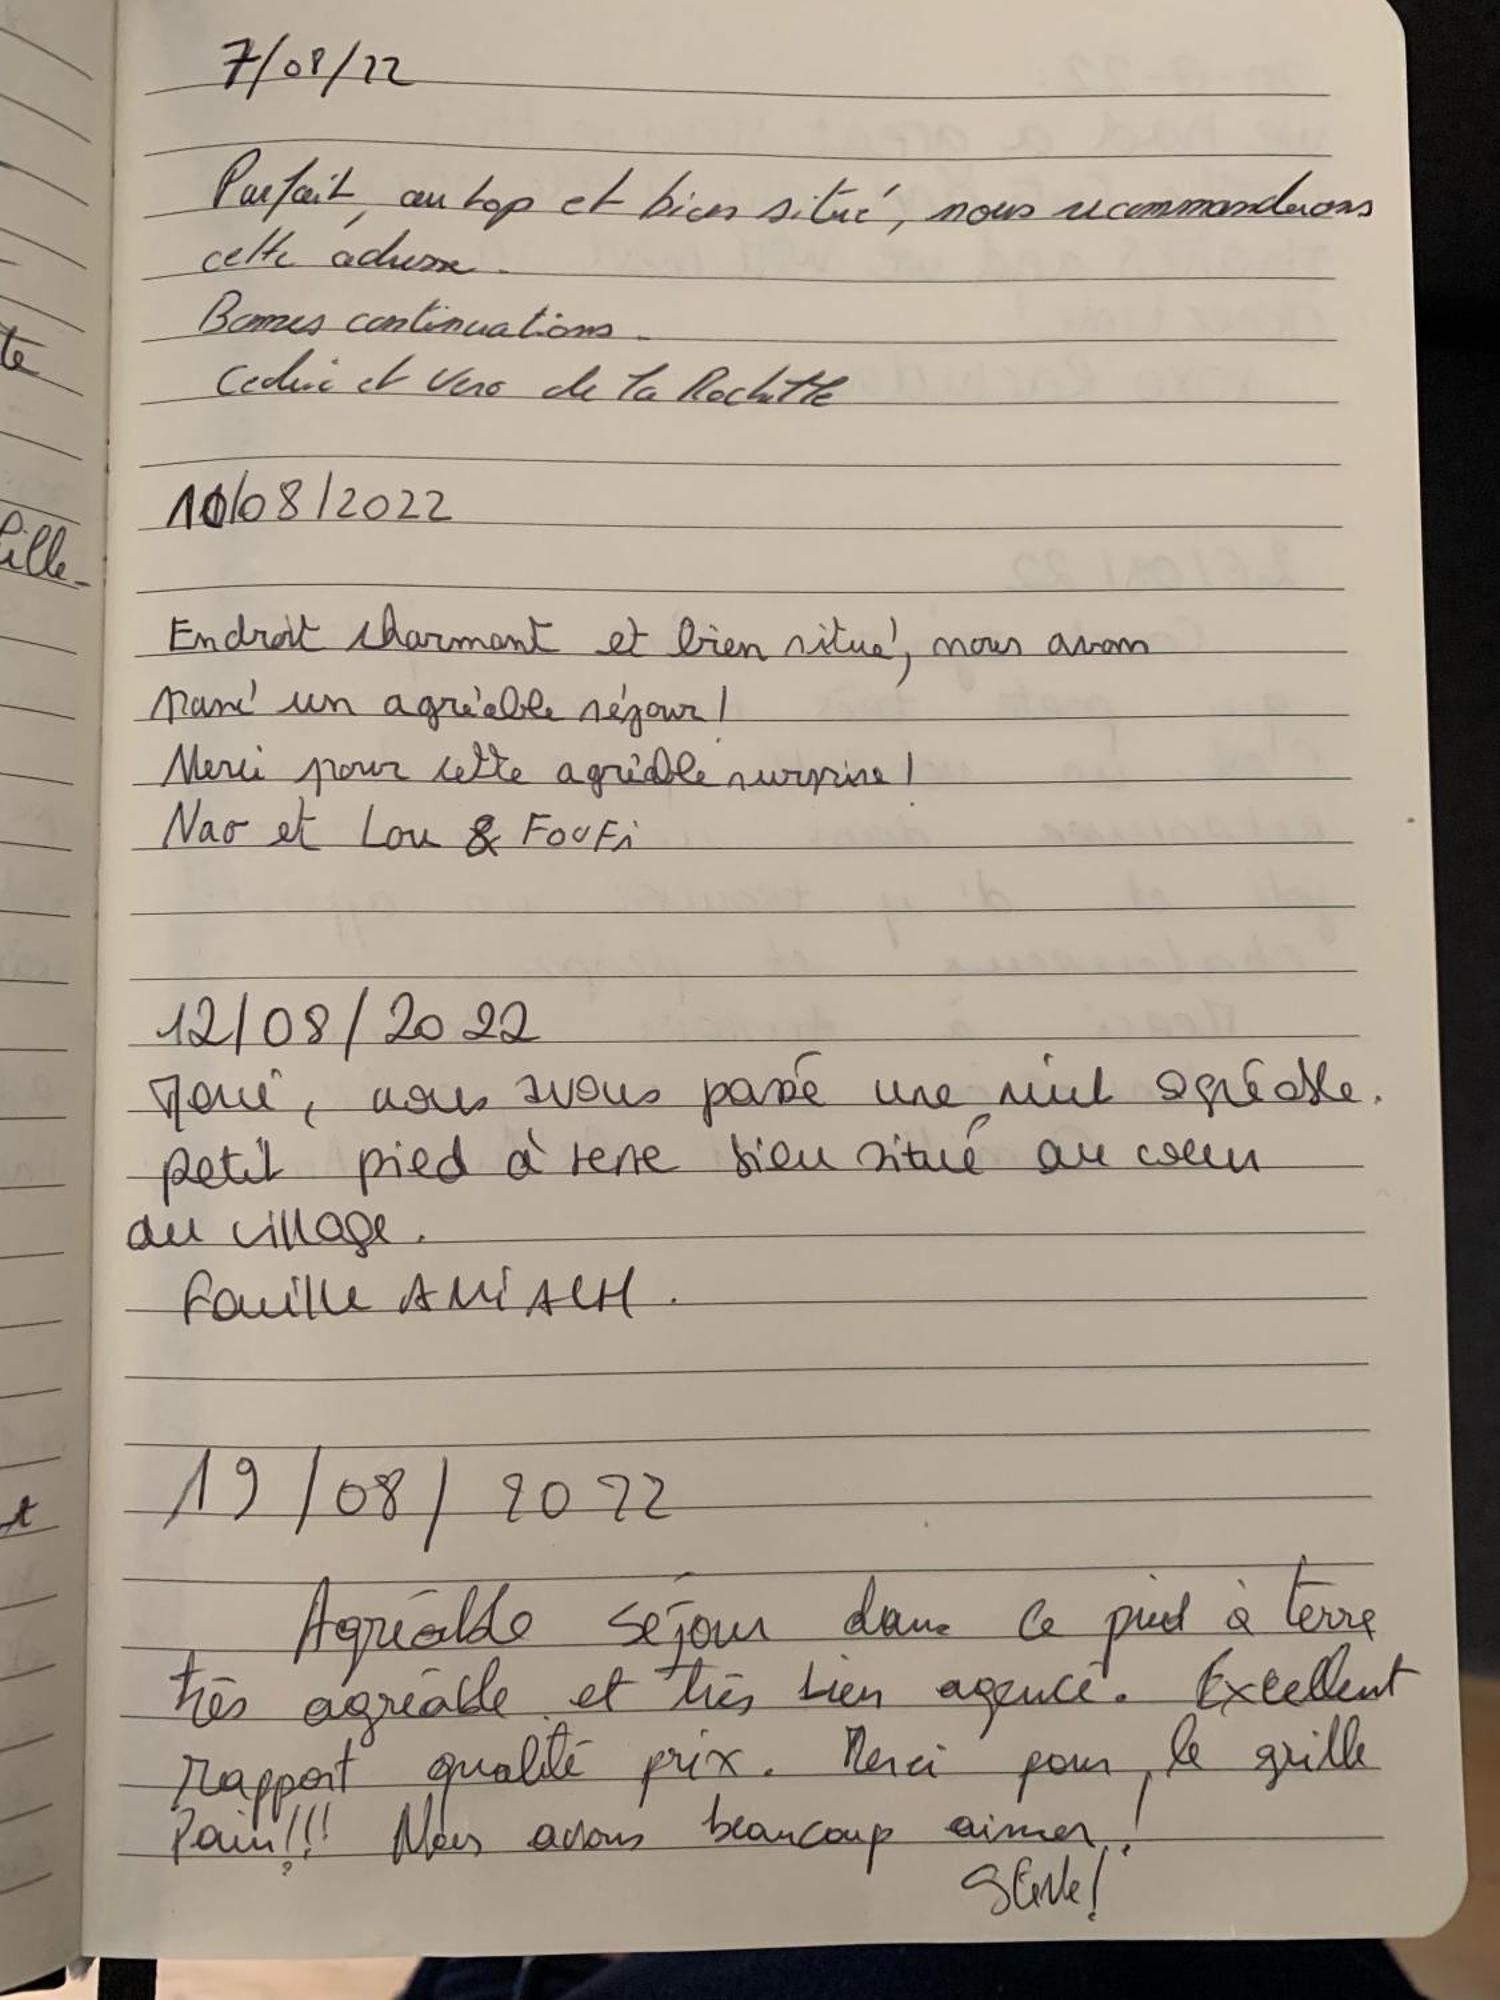 7/08/22
Parfait, au top et bien situé, nous recommanderons
cette adresse.
Bonnes continuations.
Cedric et Vero de la Rochette
10/08/2022
Endroit charmant et bien situé, nous avons
passé un agréable séjour !
Merci pour cette agréable surprise !
Nao et Lou & FouFi
12/08/2022
nous avons passé une nuit agréable.
petit pied à terre bien situé au coeur
du village.
famille
19/08/2022
Agréable séjour dans ce pied à terre
très agréable et très bien agencé. Excellent
rapport qualité prix. Merci pour le grille
Pain!!! Nous avons beaucoup aimer !
te
fille
t